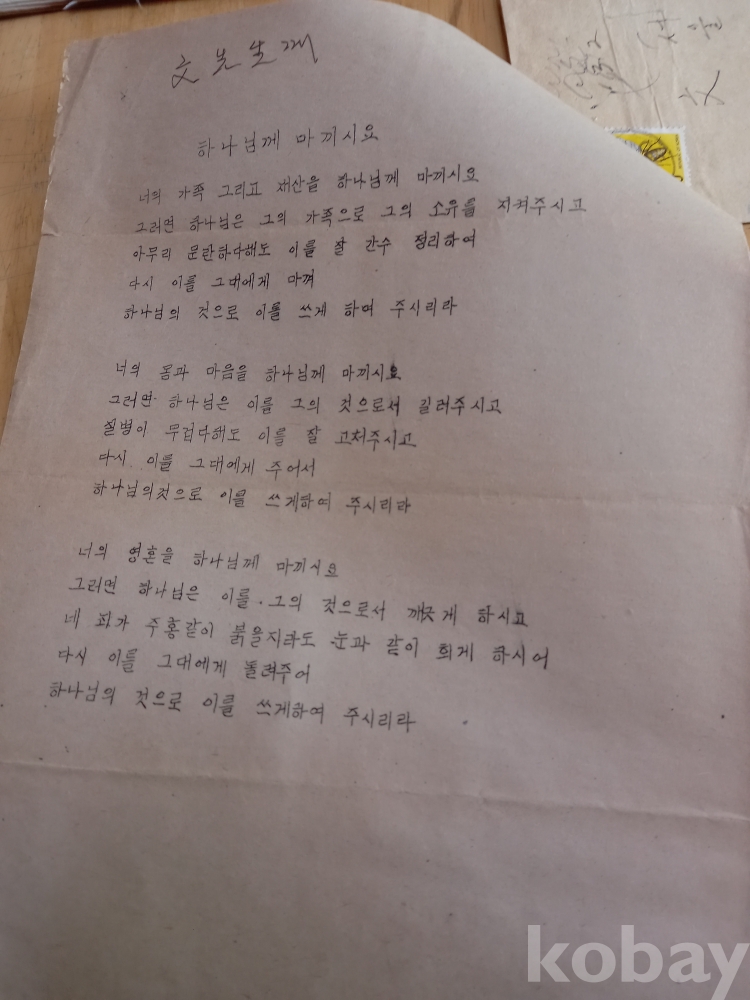 文先生께
하나님께 마끼시요
너의 가족 그리고 재산을 하나님께 마끼시요
그러면 하나님은 그의 가족으로 그의 소유를 지켜주시고
아무리 문란하다해도 이를 잘 간수 정리하여
다시 이를 그대에게 마껴
하나님의 것으로 이를 쓰게 하여 주시리라
너의 몸과 마음을 하나님께 마끼시요
그러면 하나님은 이를 그의 것으로서 길러주시고
질병이 무겁다해도 이를 잘 고처주시고
다시 이를 그대에게 주어서
하나님의것으로 이를 쓰게하여 주시리라
너의 영혼을 하나님께 마끼시요
그러면 하나님은 이를 그의 것으로서 깨끗게 하시고
네 죄가 주홍같이 붉을지라도 눈과 같이 희게 하시어
다시 이를 그대에게 돌려주어
하나님의 것으로 이를 쓰게하여 주시리라
kobay